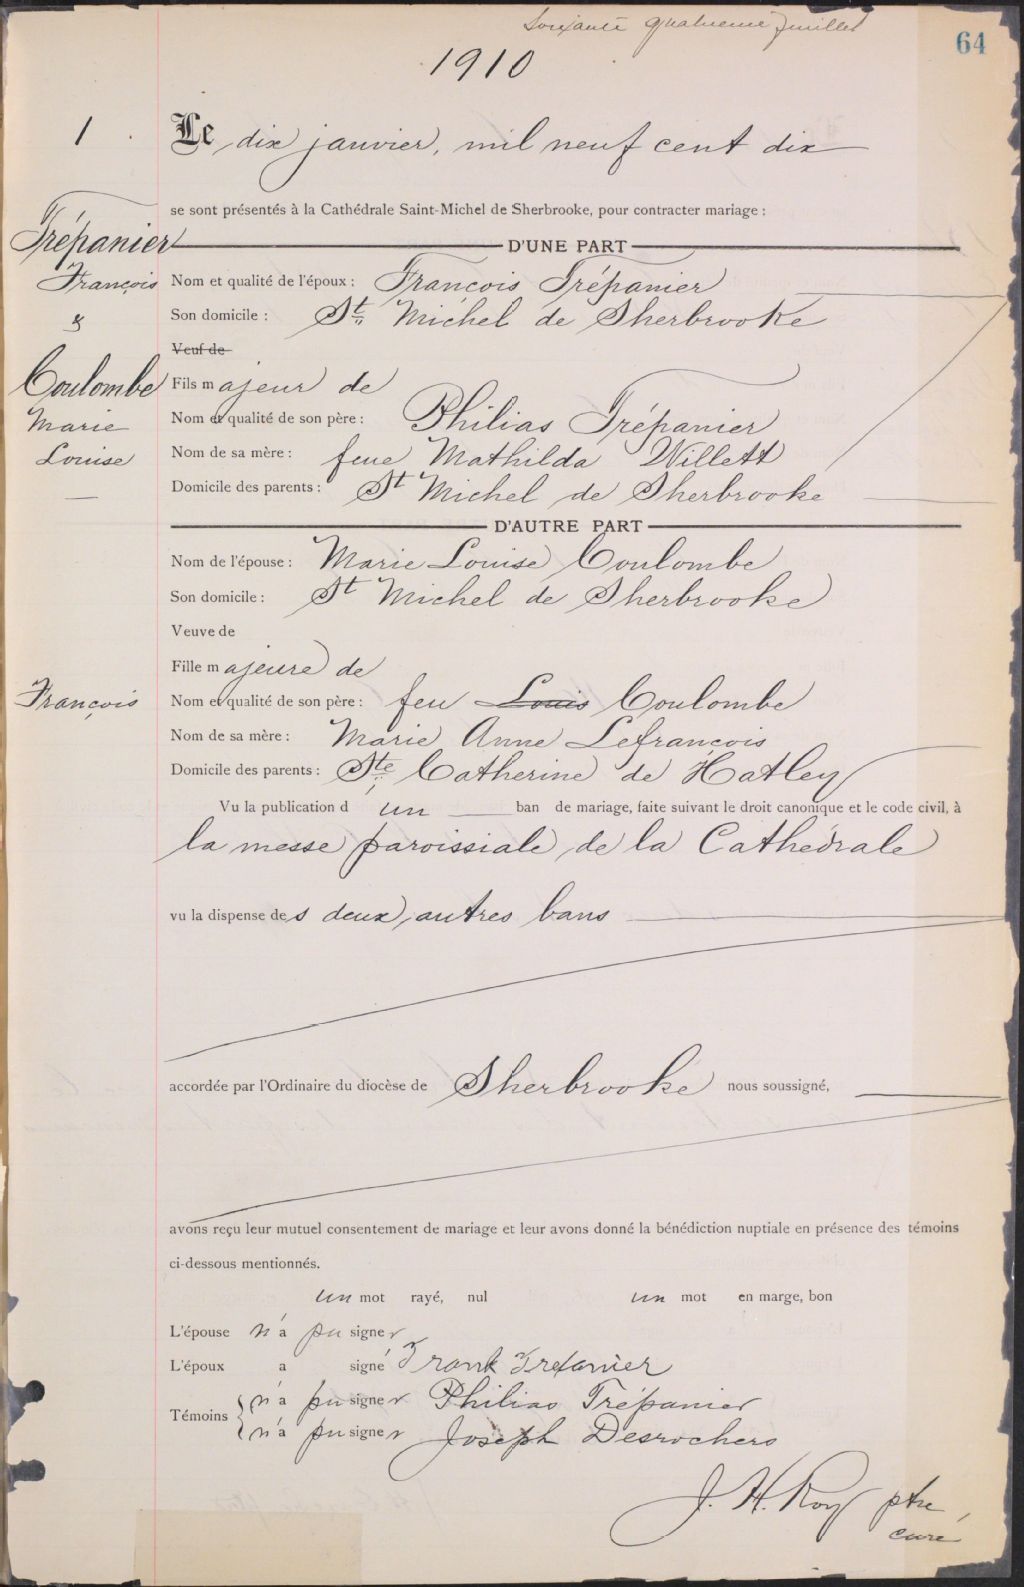 Soixante quatrieme feuillet
64
1910
1
Le dix janvier, mil neuf cent dix
se sont présentés à la Cathédrale Saint-Michel de Sherbrooke, pour contracter mariage :
Trépanier
François
&
Coulombe
Marie
Louise
D'UNE PART
Nom et qualité de l'époux : François Trépanier
Son domicile : St Michel de Sherbrooke
Veuf de
Fils majeur de
Nom et qualité de son père : Philias Trépanier
Nom de sa mère : feue Mathilda Willett
Domicile des parents : St Michel de Sherbrooke
D'AUTRE PART
Nom de l'épouse : Marie Louise Coulombe
Son domicile : St Michel de Sherbrooke
Veuve de
Fille majeure de
François
Nom et qualité de son père : feu Louis Coulombe
Nom de sa mère : Marie Anne Lefrançois
Domicile des parents : Ste Catherine de Hatley
Vu la publication d un ban de mariage, faite suivant le droit canonique et le code civil, à
la messe paroissiale de la Cathédrale
vu la dispense des deux autres bans
accordée par l'Ordinaire du diocèse de Sherbrooke nous soussigné,
avons reçu leur mutuel consentement de mariage et leur avons donné la bénédiction nuptiale en présence des témoins
ci-dessous mentionnés.
un mot rayé, nul un mot en marge, bon
L'épouse n'a pu signer
L'époux a signé Frank Trepanier
Témoins { n'a pu signer Philias Trépanier
n'a pu signer Joseph Desrochers
J. H. Roy ptre
curé